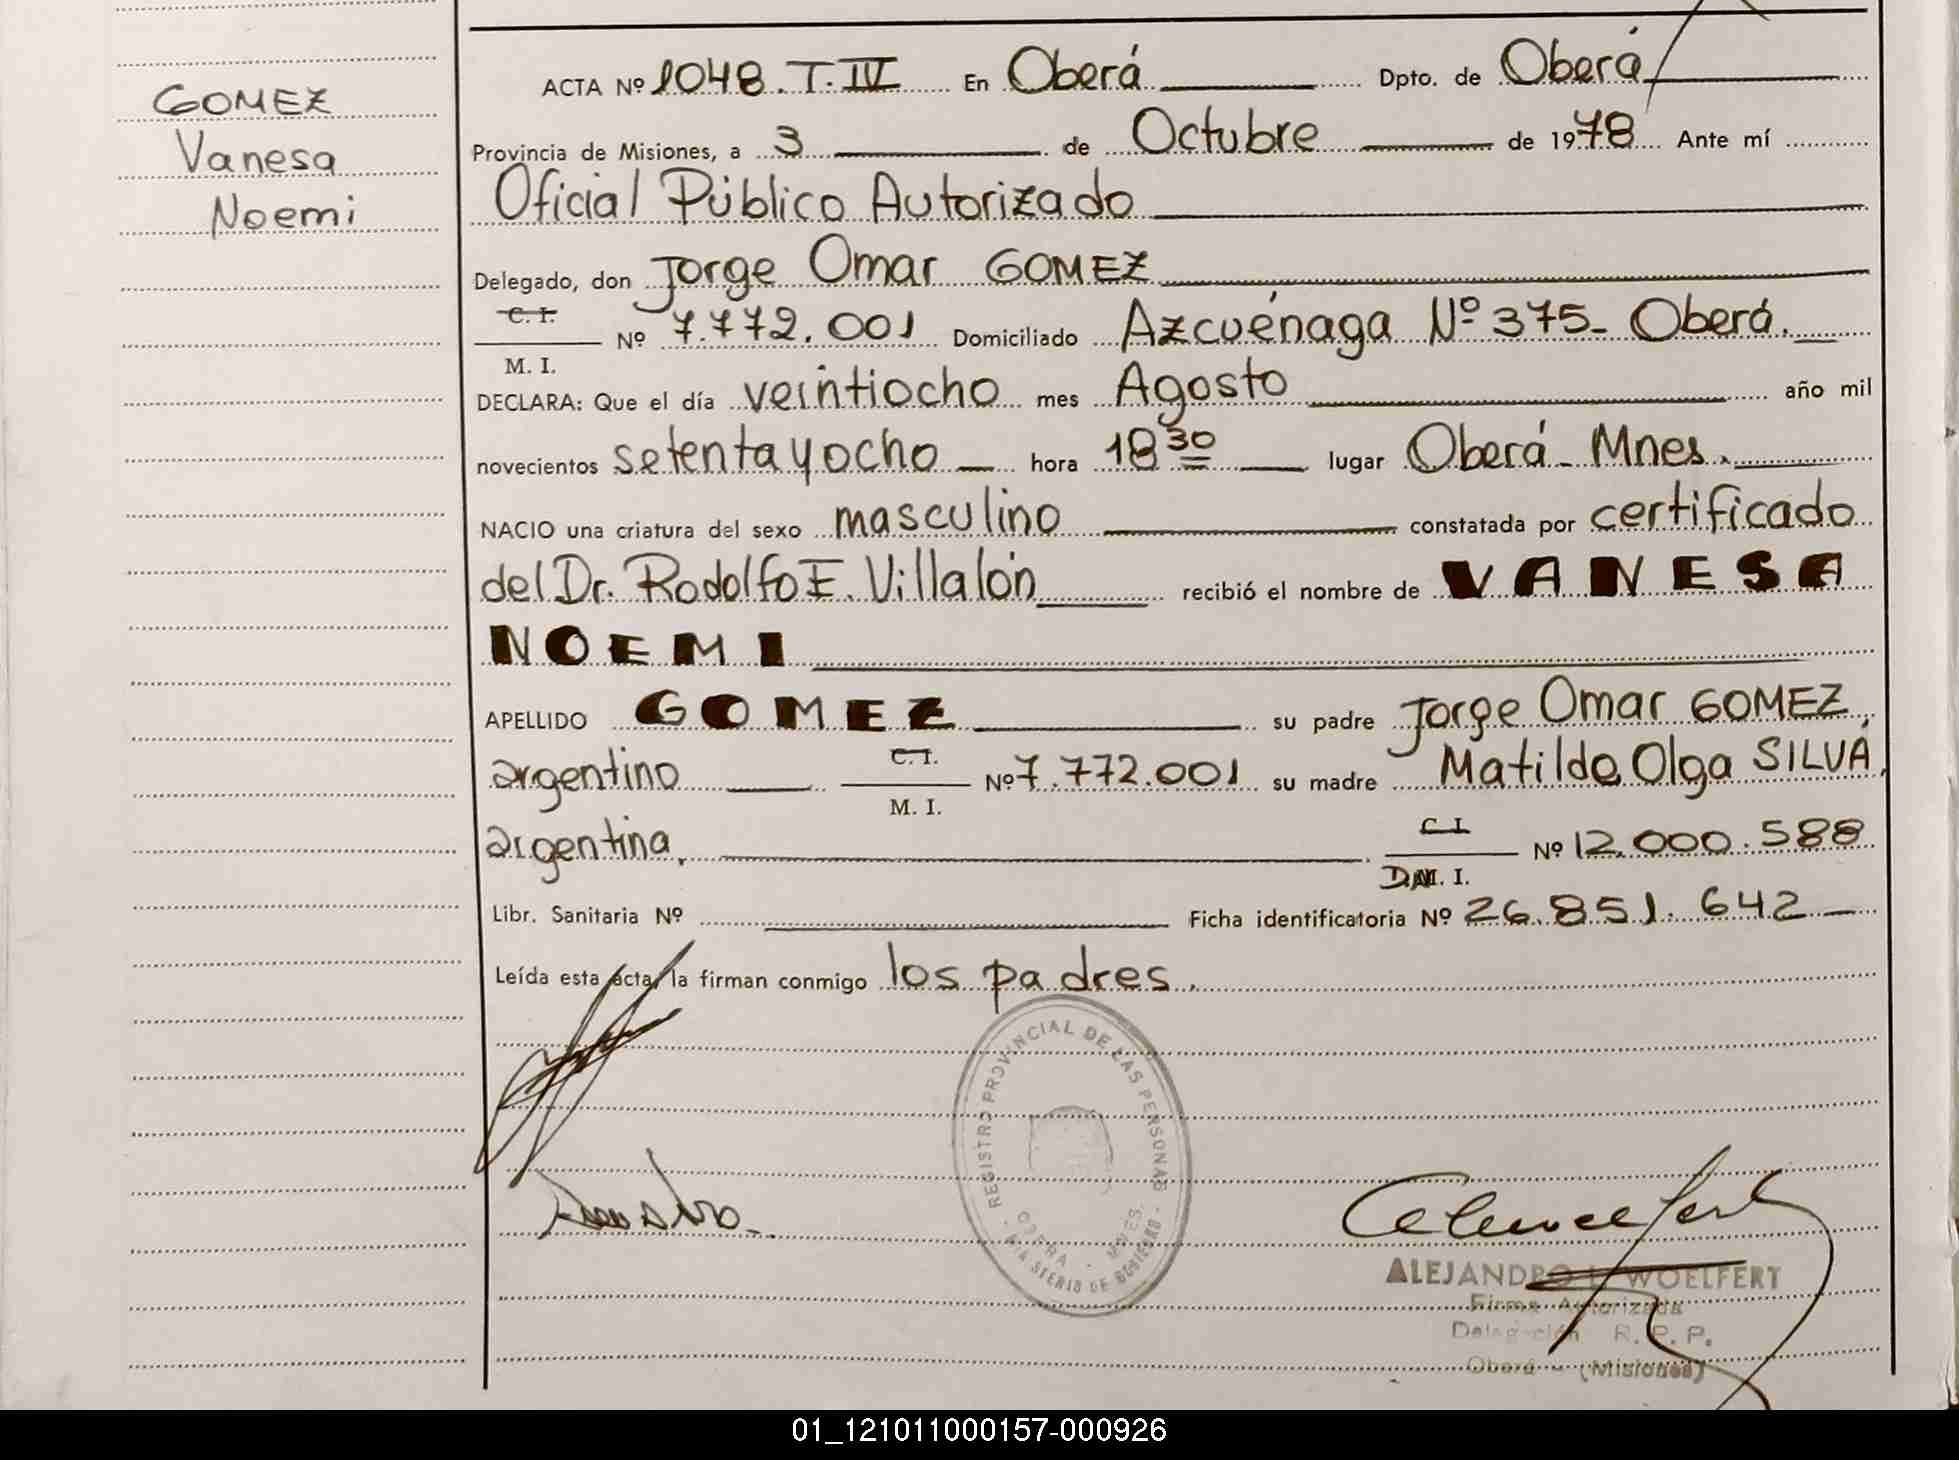 GOMEZ
Vanesa
Noemi
ACTA Nº 1048. T. IV En Oberá Dpto. de Oberá
Provincia de Misiones, a 3 de Octubre de 1978 Ante mí
Oficial Público Autorizado
Delegado, don Jorge Omar GOMEZ
C. I.
Nº 7.772.001 Domiciliado Azcuénaga Nº 375- Oberá.
M. I.
DECLARA: Que el día veintiocho mes Agosto año mil
novecientos setenta y ocho hora 18 30 lugar Oberá - Mnes.
NACIO una criatura del sexo masculino constatada por certificado
del Dr. Rodolfo E. Villalón recibió el nombre de VANESA
NOEMI
APELLIDO GOMEZ su padre Jorge Omar GOMEZ,
C. I.
argentino Nº 7.772.001 su madre Matilde Olga SILVA,
M. I.
C. I.
argentina. Nº 12.000.588
D.M. I.
Libr. Sanitaria Nº Ficha identificatoria Nº 26.851.642
Leída esta acta, la firman conmigo los padres.
REGISTRO PROVINCIAL DE LAS PERSONAS
OBERA - MNES.
MINISTERIO DE GOBIERNO
ALEJANDRO L. WOELFERT
Firma Autorizada
Delegación R. P. P.
Oberá - (Misiones)
01_121011000157-000926